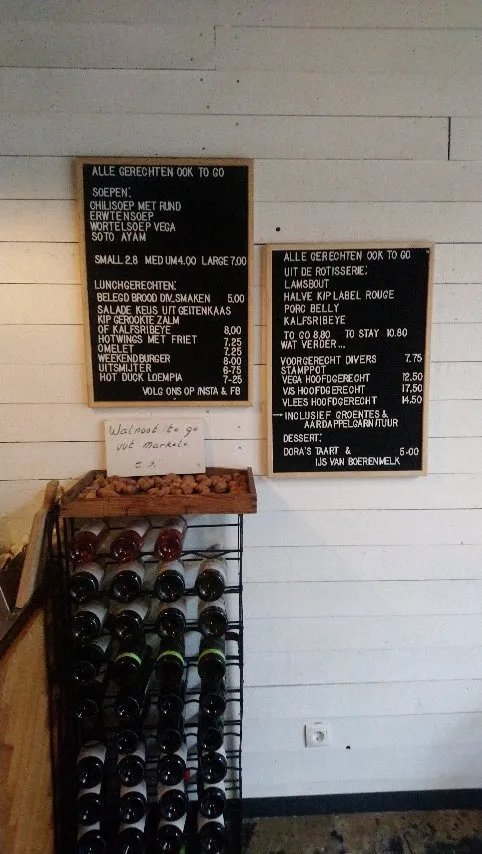 ALLE GERECHTEN OOK TO GO
SOEPEN:
CHILISOEP MET RUND
ERWTENSOEP
WORTELSOEP VEGA
SOTO AYAM
SMALL 2,8 MEDIUM 4.00 LARGE 7,00
LUNCHGERECHTEN:
BELEGD BROOD DIV. SMAKEN 5.00
SALADE KEUS UIT GEITENKAAS
KIP GEROOKTE ZALM
OF KALFSRIBEYE 8,00
HOTWINGS MET FRIET 7,25
OMELET 7,25
WEEKENDBURGER 8-00
UITSMIJTER 6-75
HOT DUCK LOEMPIA 7-25
VOLG ONS OP INSTA & FB
ALLE GERECHTEN OOK TO GO
UIT DE ROTISSERIE:
LAMSBOUT
HALVE KIP LABEL ROUGE
PORC BELLY
KALFSRIBEYE
TO GO 8,80 TO STAY 10.80
WAT VERDER...
VOORGERECHT DIVERS 7.75
STAMPPOT
VEGA HOOFDGERECHT 12,50
VIS HOOFDGERECHT 17,50
VLEES HOOFDGERECHT 14.50
→INCLUSIEF GROENTES &
AARDAPPELGARNITUUR
DESSERT:
DORA'S TAART & 5.00
IJS VAN BOERENMELK
Walnoot to go
uut Markelo